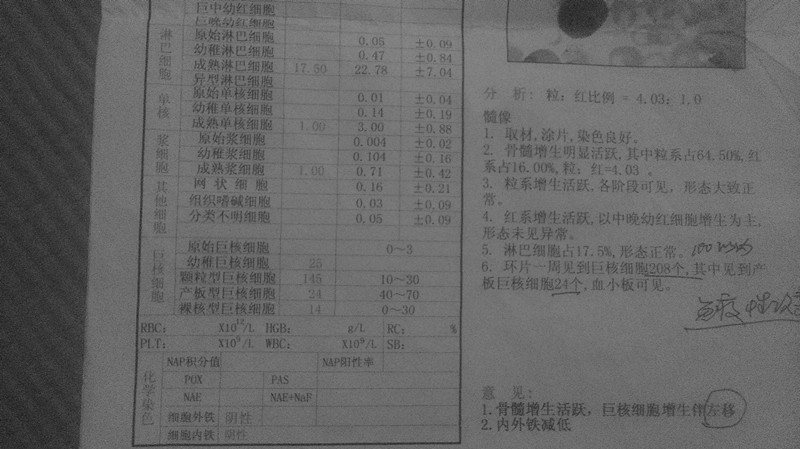 巨中幼红细胞
巨晚幼红细胞
淋巴细胞
原始淋巴细胞 0.05 ±0.09
幼稚淋巴细胞 0.47 ±0.84
成熟淋巴细胞 17.50 22.78 ±7.04
异型淋巴细胞
单核
原始单核细胞 0.01 ±0.04
幼稚单核细胞 0.14 ±0.19
成熟单核细胞 1.00 3.00 ±0.88
浆细胞
原始浆细胞 0.004 ±0.02
幼稚浆细胞 0.104 ±0.16
成熟浆细胞 1.00 0.71 ±0.42
其他细胞
网状细胞 0.16 ±0.21
组织嗜碱细胞 0.03 ±0.09
分类不明细胞 0.05 ±0.09
巨核细胞
原始巨核细胞 0~3
幼稚巨核细胞 25
颗粒型巨核细胞 145 10~30
产板型巨核细胞 24 40~70
裸核型巨核细胞 14 0~30
RBC: X10¹²/L HGB: g/L RC: %
PLT: X10⁹/L WBC: X10⁹/L SB:
化学染色
NAP积分值 NAP阳性率
POX PAS
NAE NAE+NaF
细胞外铁 阴性
细胞内铁 阴性
分 析: 粒: 红比例 = 4.03: 1.0
髓像
1. 取材,涂片,染色良好。
2. 骨髓增生明显活跃,其中粒系占64.50%,红
系占16.00%,粒: 红=4.03 。
3. 粒系增生活跃,各阶段可见, 形态大致正
常。
4. 红系增生活跃,以中晚幼红细胞增生为主,
形态未见异常。
5. 淋巴细胞占17.5%,形态正常。
6. 环片一周见到巨核细胞208个,其中见到产
板巨核细胞24个,血小板可见。
意 见:
1.骨髓增生活跃, 巨核细胞增生伴左移
2.内外铁减低